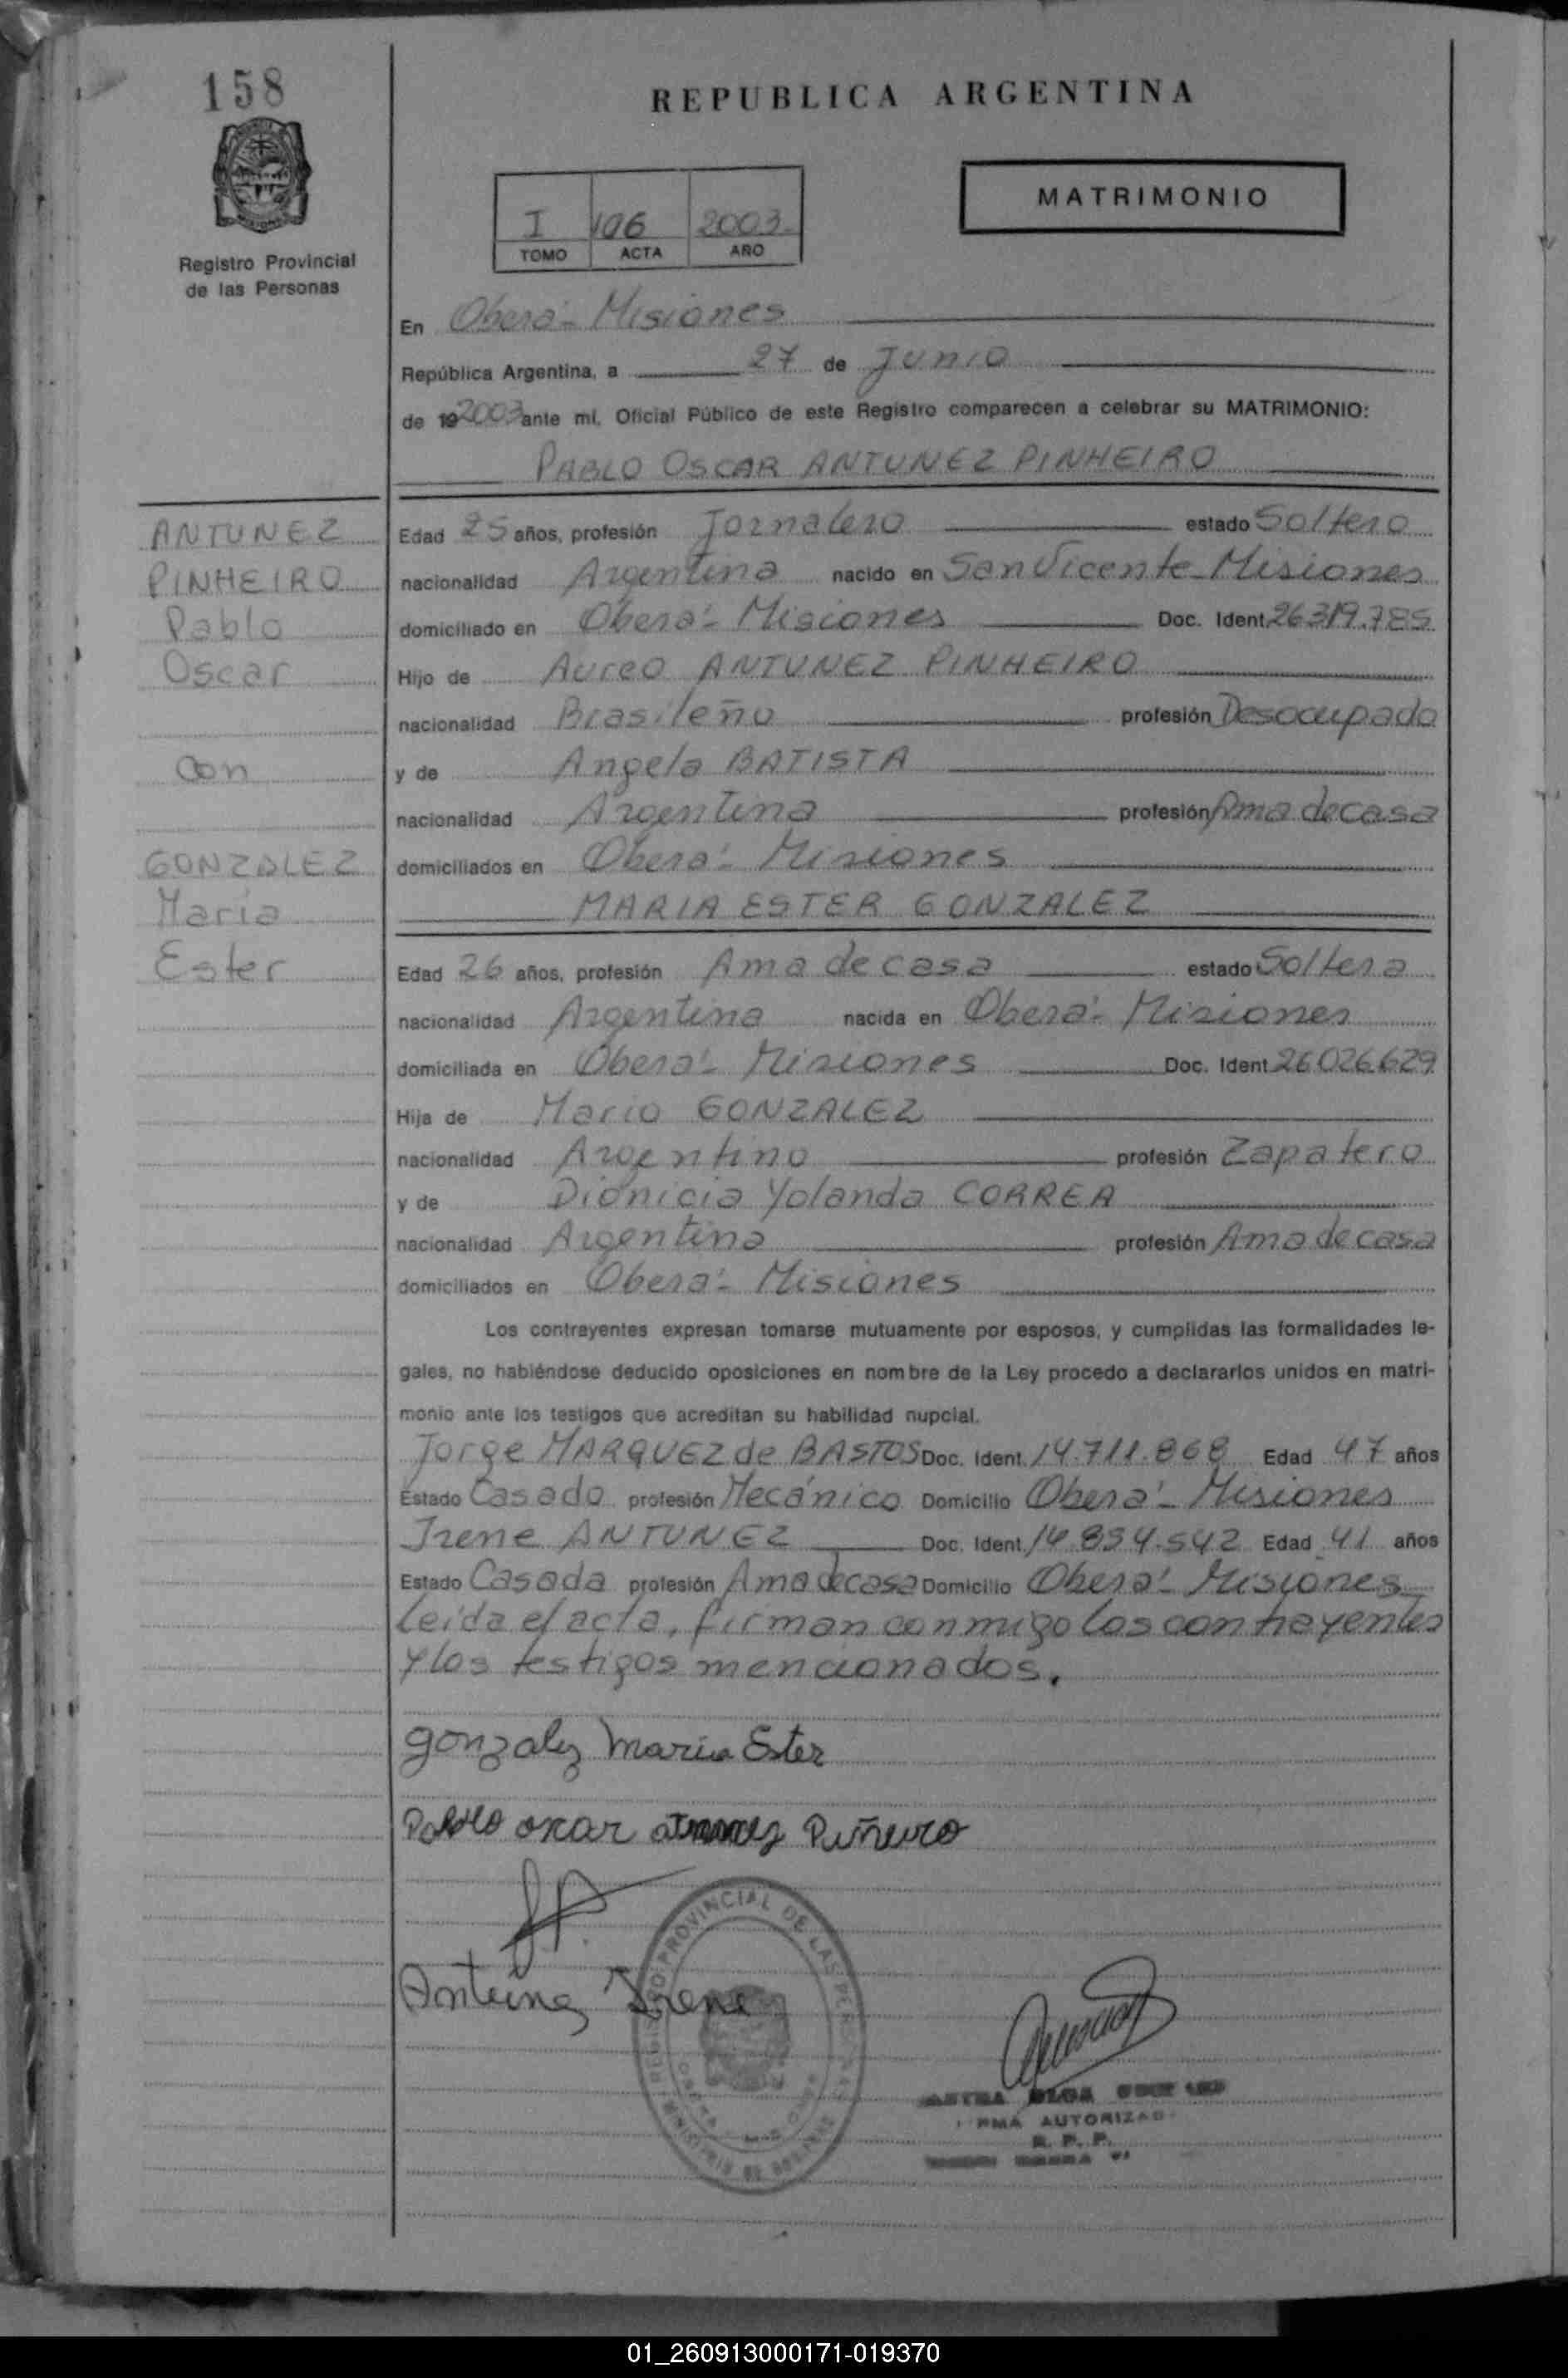 158
REPUBLICA ARGENTINA
MATRIMONIO
I 106 2003
TOMO ACTA AÑO
Registro Provincial
de las Personas
En Oberá - Misiones
República Argentina, a 27 de Junio
de 192003 ante mí, Oficial Público de este Registro comparecen a celebrar su MATRIMONIO:
PABLO OSCAR ANTUNEZ PINHEIRO
ANTUNEZ
PINHEIRO
Pablo
Oscar
con
GONZALEZ
María
Ester
Edad 25 años, profesión Jornalero estado Soltero
nacionalidad Argentina nacido en San Vicente - Misiones
domiciliado en Oberá - Misiones Doc. Ident. 26.319.785
Hijo de Aureo ANTUNEZ PINHEIRO
nacionalidad Brasileño profesión Desocupado
y de Angela BATISTA
nacionalidad Argentina profesión Ama de casa
domiciliados en Oberá - Misiones
MARIA ESTER GONZALEZ
Edad 26 años, profesión Ama de casa estado Soltera
nacionalidad Argentina nacida en Oberá - Misiones
domiciliada en Oberá - Misiones Doc. Ident. 26.026.629
Hija de Mario GONZALEZ
nacionalidad Argentino profesión Zapatero
y de Dionicia Yolanda CORREA
nacionalidad Argentina profesión Ama de casa
domiciliados en Oberá - Misiones
Los contrayentes expresan tomarse mutuamente por esposos, y cumplidas las formalidades le-
gales, no habiéndose deducido oposiciones en nombre de la Ley procedo a declararlos unidos en matri-
monio ante los testigos que acreditan su habilidad nupcial.
Jorge MARQUEZ de BASTOS Doc. Ident. 14.711.868 Edad 47 años
Estado Casado profesión Mecánico Domicilio Oberá - Misiones
Irene ANTUNEZ Doc. Ident. 14.834.542 Edad 41 años
Estado Casada profesión Ama de casa Domicilio Oberá - Misiones
leída el acta, firman conmigo los contrayentes
y los testigos mencionados.
gonzalez maria Ester
Pablo oscar Piñeiro
Antúnez Irene
REGISTRO PROVINCIAL DE LAS PERSONAS
MINISTERIO DE GOBIERNO
OLGA
FIRMA AUTORIZADA
R. P. P.
01_260913000171-019370